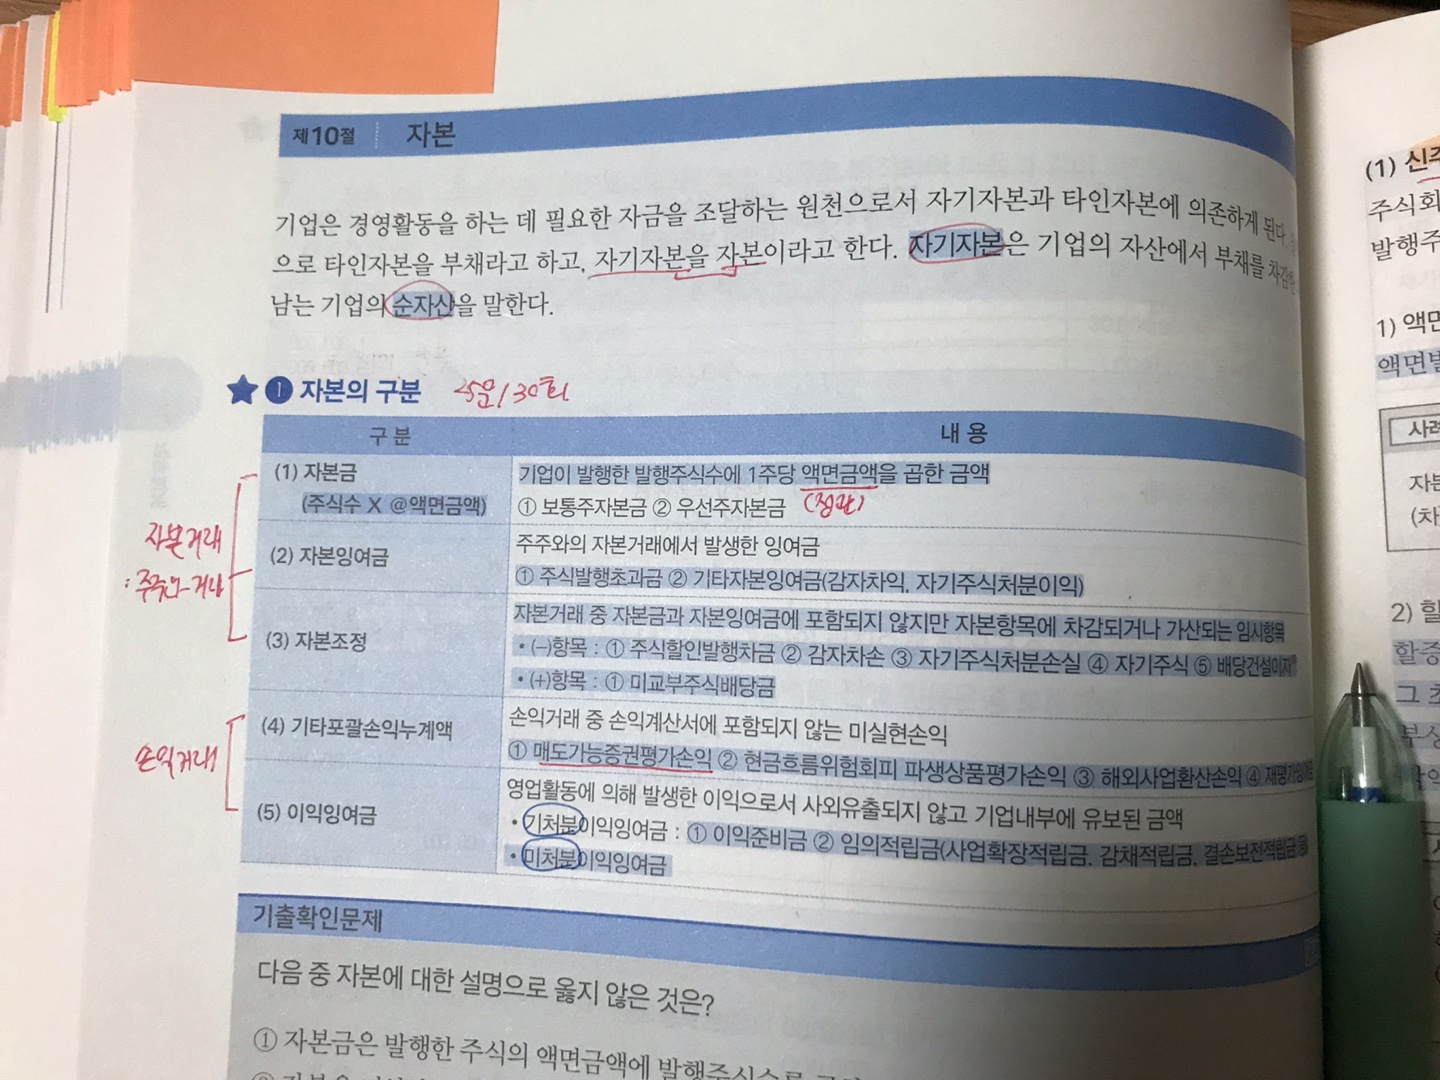 제10절 자본
기업은 경영활동을 하는 데 필요한 자금을 조달하는 원천으로서 자기자본과 타인자본에 의존하게 된다.
으로 타인자본을 부채라고 하고, 자기자본을 자본이라고 한다. 자기자본은 기업의 자산에서 부채를
남는 기업의 순자산을 말한다.
★ ❶ 자본의 구분 25문/30회
구 분 내 용
(1) 자본금 기업이 발행한 발행주식수에 1주당 액면금액을 곱한 금액
(주식수 X @액면금액) ① 보통주자본금 ② 우선주자본금 (정관)
자본거래
(2) 자본잉여금 주주와의 자본거래에서 발생한 잉여금
① 주식발행초과금 ② 기타자본잉여금(감자차익, 자기주식처분이익)
(3) 자본조정 자본거래 중 자본금과 자본잉여금에 포함되지 않지만 자본항목에 차감되거나 가산되는 임시항목
• (−)항목 : ① 주식할인발행차금 ② 감자차손 ③ 자기주식처분손실 ④ 자기주식 ⑤ 배당건설이자
• (+)항목 : ① 미교부주식배당금
손익거래
(4) 기타포괄손익누계액 손익거래 중 손익계산서에 포함되지 않는 미실현손익
① 매도가능증권평가손익 ② 현금흐름위험회피 파생상품평가손익 ③ 해외사업환산손익 ④
(5) 이익잉여금 영업활동에 의해 발생한 이익으로서 사외유출되지 않고 기업내부에 유보된 금액
• 기처분이익잉여금 : ① 이익준비금 ② 임의적립금(사업확장적립금, 감채적립금, 결손보전적립금
• 미처분이익잉여금
기출확인문제
다음 중 자본에 대한 설명으로 옳지 않은 것은?
① 자본금은 발행한 주식의 액면금액에 발행주식수를
(1)
주식회
발행주
1) 액면
액면발
사례
자본
(차
2) 할
할증
그 초